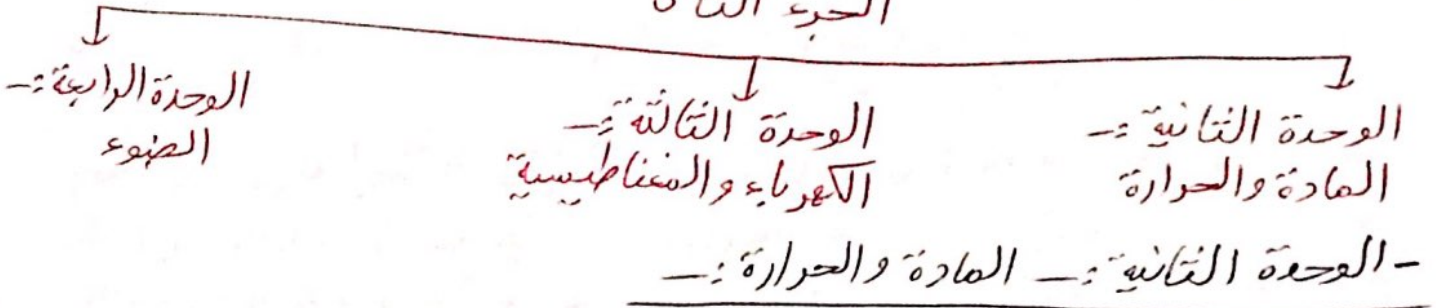 الجزء
الوحدة الثانية :-
المادة والحرارة
الوحدة الثالثة :-
الكهرباء والمغناطيسية
الوحدة الرابعة :-
الضوء
- الوحدة الثانية :- المادة والحرارة :-